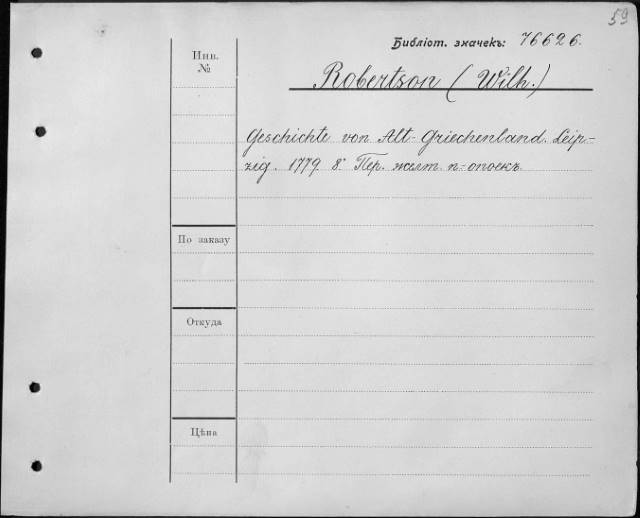 59
Библіот. значекъ: 76626.
Инв.
№
Robertson (Wilh.)
Geschichte von Alt-Griechenland. Leip-
zig. 1779. 8º Пер. желт. п.-опоекъ.
По заказу
Откуда
Цѣна